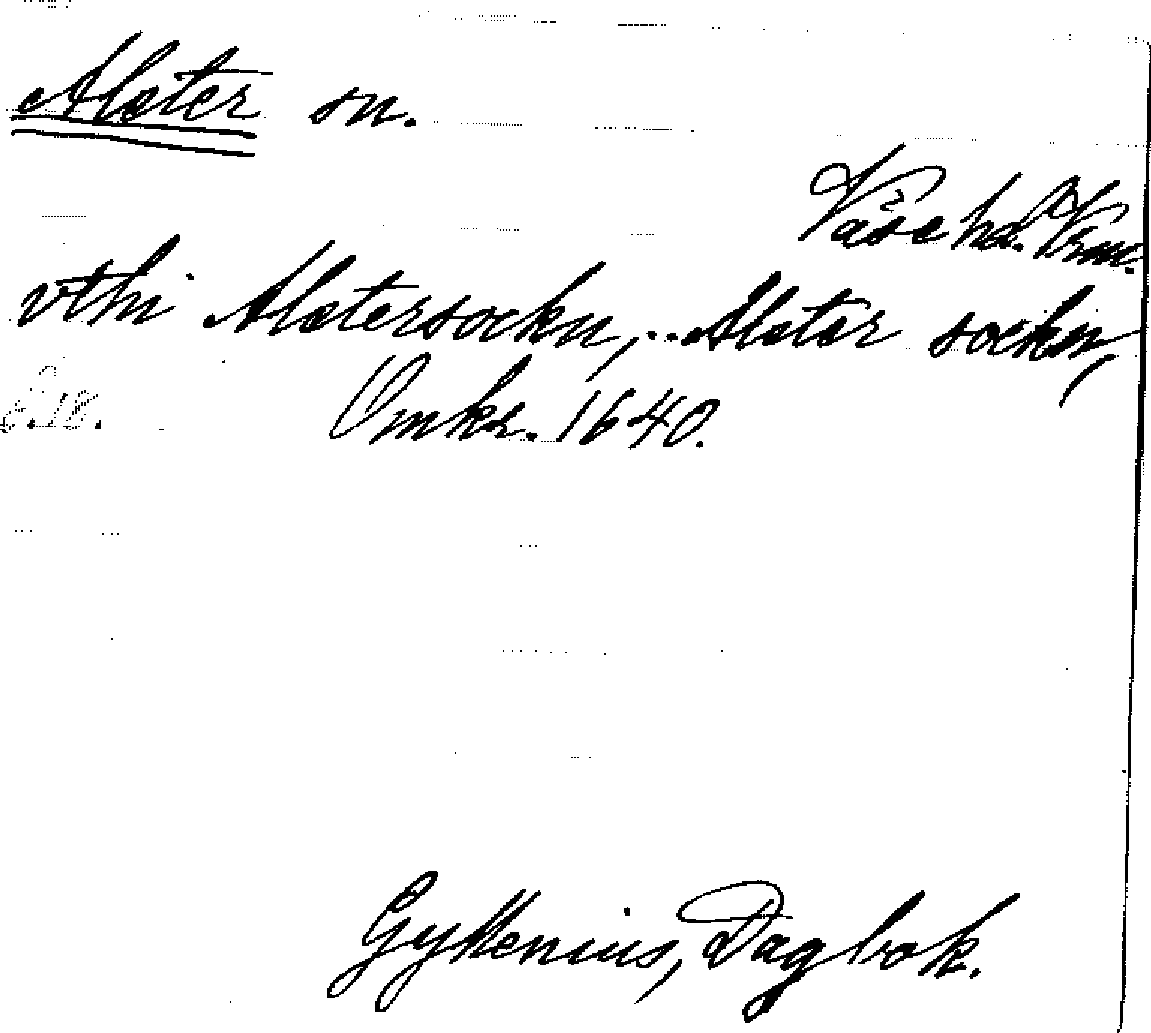 Alster sn.
Väse hd. Vrm.
vthi Alstersockn, .. Alster sockn,
S. 18. Omkr. 1640.
Gyllenius, Dagbok.